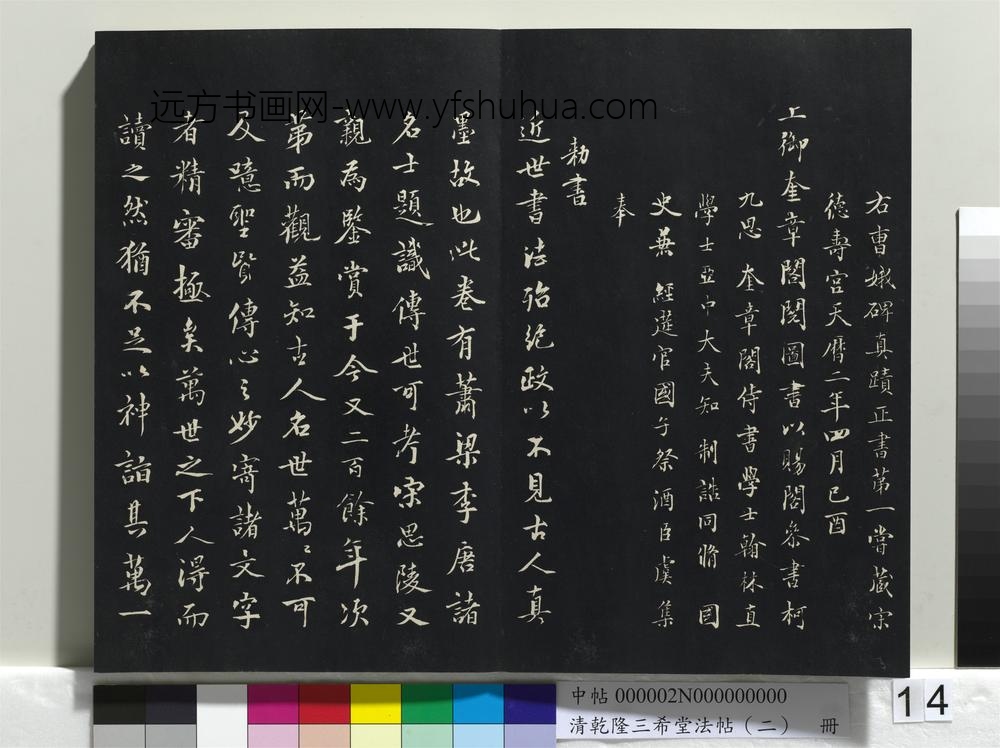 右曹娥碑真蹟正書第一嘗藏宋
德壽宮天曆二年四月己酉
上御奎章閣閱圖書以賜閣參書柯
九思 奎章閣侍書學士翰林直
學士亞中大夫知 制誥同脩 國
史兼 經筵官國子祭酒臣虞集
奉
勑書
近世書法殆絕政以不見古人真
墨故也此卷有蕭梁李唐諸
名士題識傳世可考宋思陵又
親為鑒賞于今又二百餘年次
第而觀益知古人名世萬萬不可
及噫聖賢傳心之妙寄諸文字
者精審極矣萬世之下人得而
讀之然猶不足以神詣其萬一
远方书画网-www.yfshuhua.com
中帖 000002N000000000
清乾隆三希堂法帖（二） 冊
14